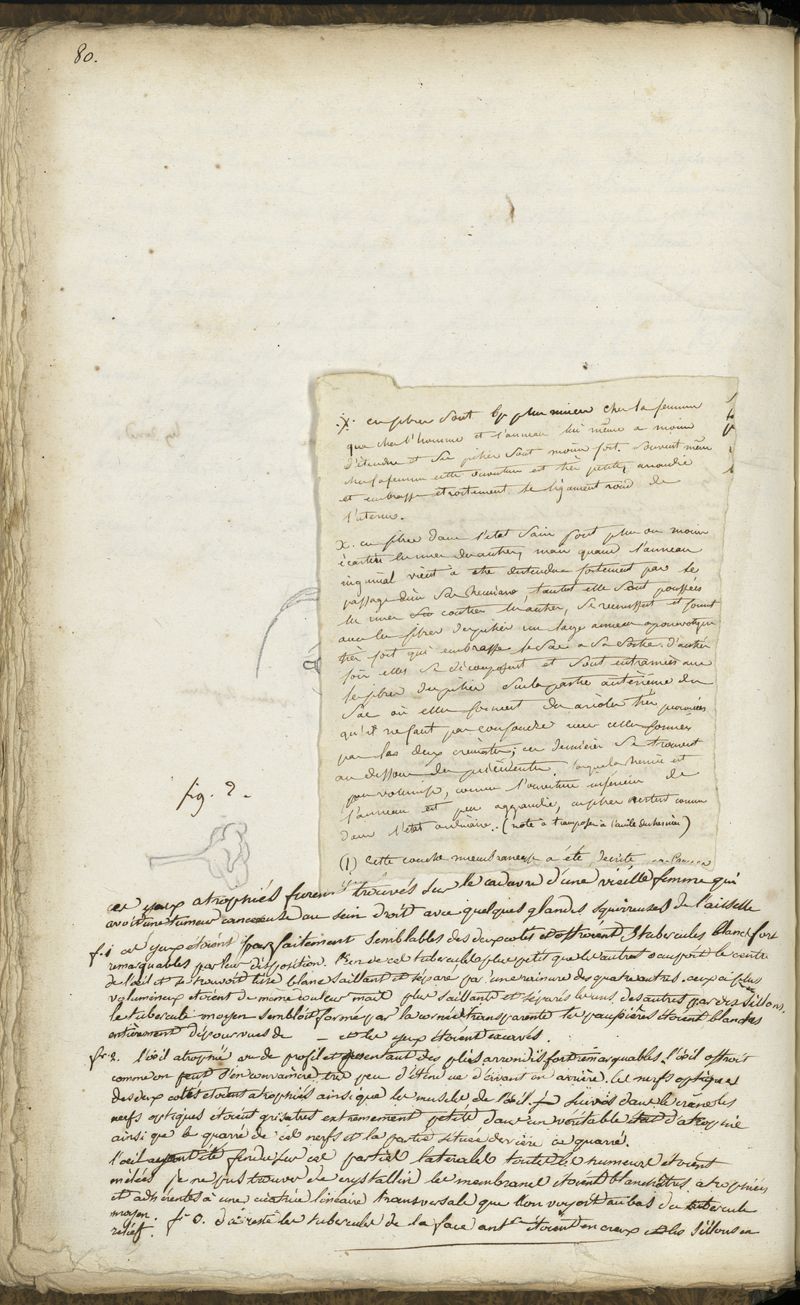 80.
X. ces fibres sont bp plus minces chez la femme
que chez l'homme et l'anneau lui même a moins
d'étendue et ses piliers sont moins fort. Souvent même
chez la femme cette ouverture est très petite, arrondie
et embrasse etroitement le ligament rond de
l'uterus.
X. ces fibres dans l'etat sain sont plus ou moins
écartées les unes des autres, mais quand l'anneau
inguinal vient à etre distendu fortement par le
passage d'un sac herniaire, tantôt elles sont poussées
les unes contre les autres, se reunissent et forment
avec les fibres des piliers un large anneau aponevrotique
très fort qui embrasse le sac a sa sortie. d'autres
fois elles se décomposent et sont entrainées avec
les fibres des piliers sur la partie anterieure du
sac où elles forment des areoles très prononcées
qu'il ne faut pas confondre avec celles formées
par les deux cremaster; ces dernieres se trouvent
au dessous des précédentes. lorsque la hernie est
peu volumineuse, comme l'ouverture inferieure de
l'anneau est peu aggrandie, ces fibres restent comme
dans l'état ordinaire. (note a transposer à l'article des hernies)
(1) Cette couche membraneuse a été décrite
fig. 2.
ces yeux atrophiés furent trouvés sur le cadavre d'une vieille femme qui
avoit une tumeur cancereuse au sein droit avec quelques glandes squirreuses de l'aisselle
f. 1 ces yeux etoient parfaitement semblables des deux cotés et offroient 5 tubercules blancs fort
remarquables par leur disposition. l'un de ces tubercules plus petit que les autres occupoit le centre
de l'oeil et se trouvoit tres blanc saillant et séparé par une rainure des quatre autres. ceux ci plus
volumineux etoient de même couleur mais plus saillants et séparés les uns des autres par des sillons.
le tubercule moyen sembloit formé par la cornée transparente les paupières étoient blanches
entièrement dépourvues de – et les yeux étoient excavés.
f. 2. l'oeil atrophié vu de profil et présentant des plis arrondis fort remarquables. l'oeil offroit
comme on peut s'en convaincre très peu d'étendue d'avant en arrière. les nerfs optiques
des deux cotés etoient atrophiés ainsi que les muscles de l'oeil. suivis dans le crâne les
nerfs optiques etoient grisatres extremement petits dans un véritable état d'atrophie
ainsi que le quarré de ces nerfs et la partie située derriere ce quarré.
l'oeil ayant été fendu sur ces parties laterales toutes les humeurs etoient
mêlées je ne pus trouver de crystallin les membranes etoient blanchâtres atrophiées
et adhérentes à une cicatrice linéaire transversale que l'on voyoit au bas du tubercule
moyen. f. 3. d'a reste les tubercules de la face antre étoient en creux et les sillons en
relief.